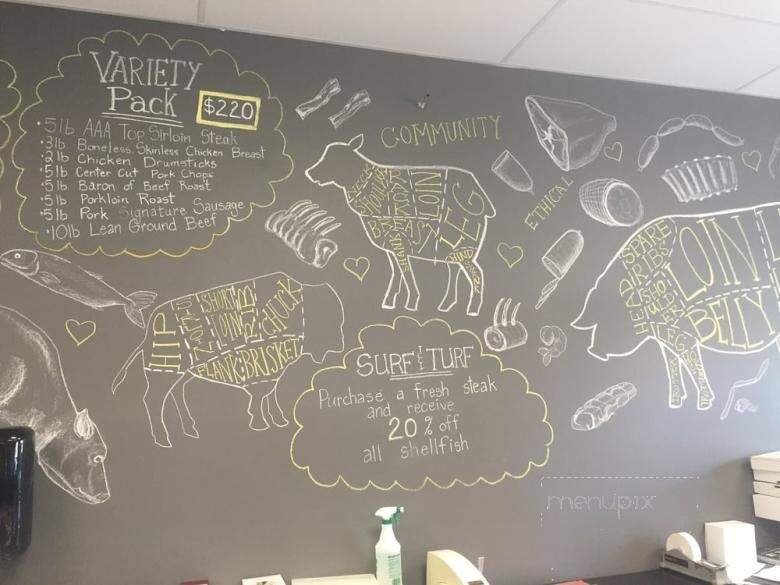 VARIETY
Pack
$220
• 5lb AAA Top Sirloin Steak
• 3lb Boneless Skinless Chicken Breast
• 2lb Chicken Drumsticks
• 5lb Center Cut Pork Chops
• 5lb Baron of Beef Roast
• 5lb Porkloin Roast
• 5lb Pork Signature Sausage
• 10lb Lean Ground Beef
COMMUNITY
ETHICAL
SHOULDER
LOIN
LEG
BREAST
SHANK
HIND
SPARE
RIBS
LOIN
HEAD
SHOULDER
BELLY
LEG
HIP
SHORT
LOIN
RIB
CHUCK
FLANK
BRISKET
SURF & TURF
Purchase a fresh steak
and receive
20% off
all shellfish
menupix